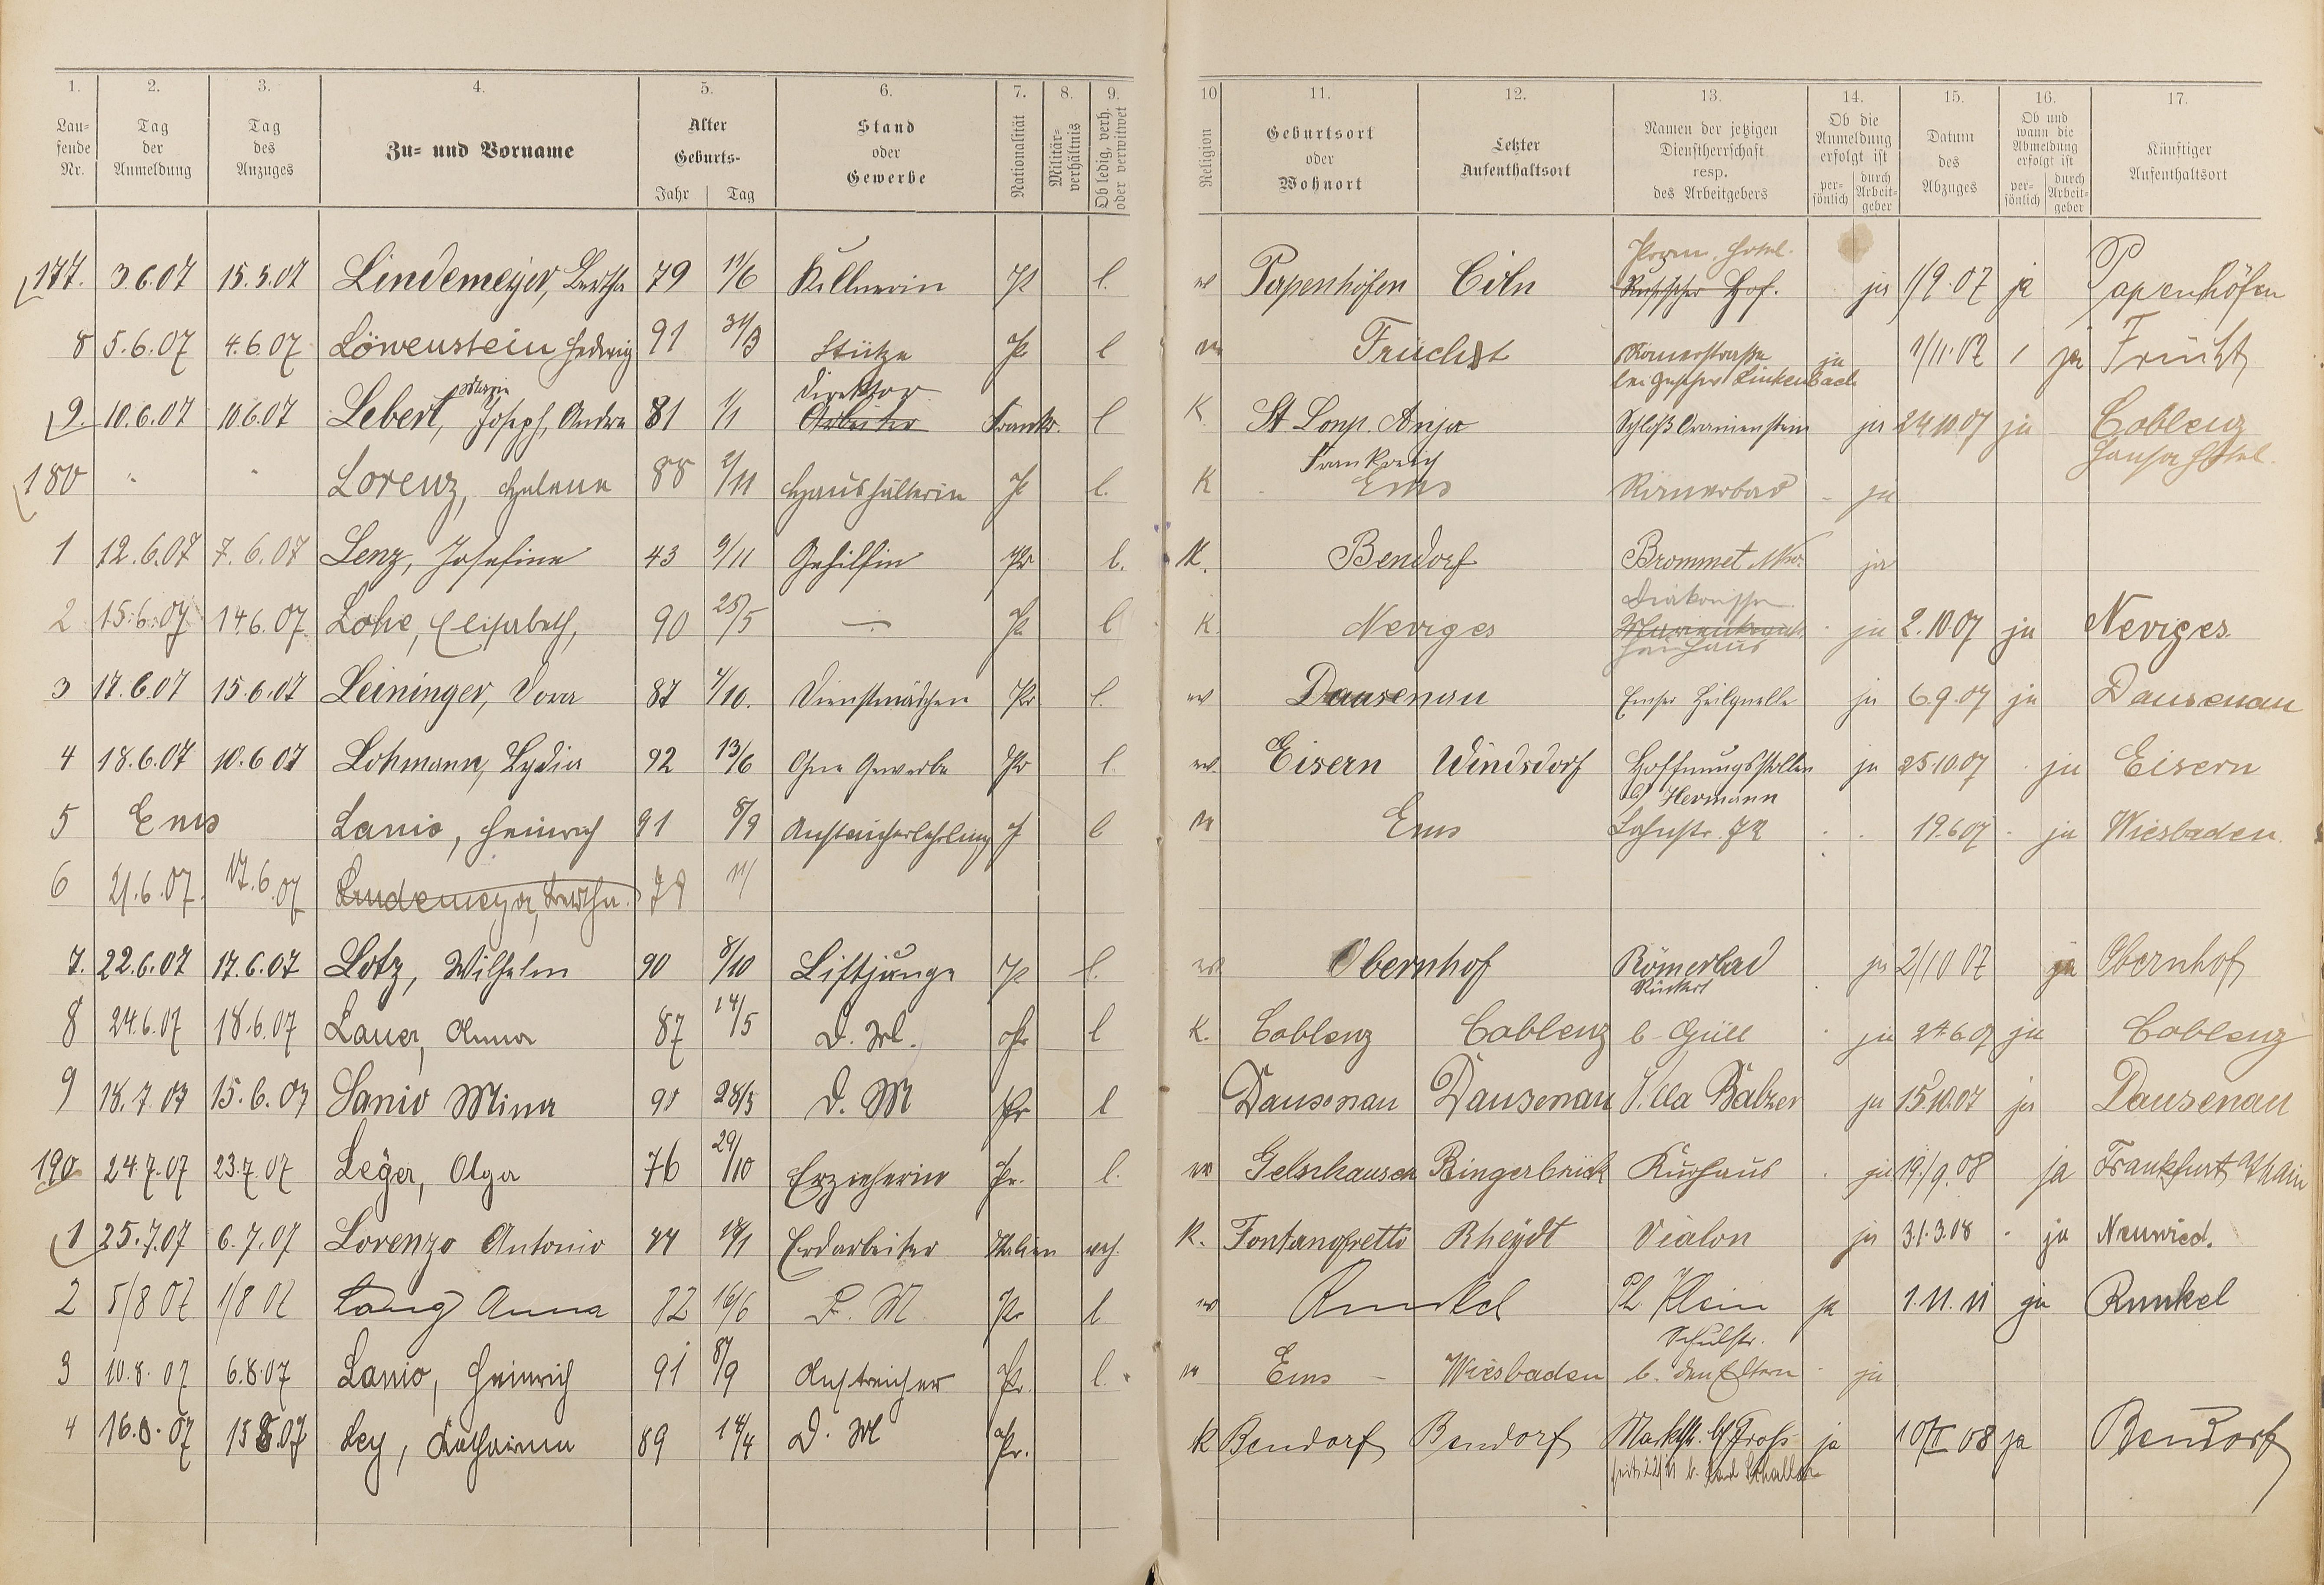 1. 2. 3. 4. 5. 6. 7. 8. 9. 10 11. 12. 13. 14. 15. 16. 17.
Laufende Nr. Tag der Anmeldung Tag des Anzuges Zu- und Vorname Alter Geburts- Jahr Tag Stand oder Gewerbe Nationalität Militärverhältnis Ob ledig, verh. oder verwitwet Religion Geburtsort oder Wohnort Letzter Aufenthaltsort Namen der jetzigen Dienstherrschaft resp. des Arbeitgebers Ob die Anmeldung erfolgt ist persönlich durch Arbeitgeber Datum des Abzuges Ob und wann die Abmeldung erfolgt ist persönlich durch Arbeitgeber Künftiger Aufenthaltsort
177. 3.6.07 15.5.07 Lindemeyer, Bertha 79 11/6 Kellnerin Pr l. Papenhöfen Cöln Hof. ja 1/9.07 ja Papenhöfen
8 5.6.07 4.6.07 Löwenstein Hedwig 91 31/3 Stütze Pr l Frücht Römerstraße bei Linkenbach ja 1/11.07 ja Frücht
9. 10.6.07 10.6.07 Lebert, Joseph, Marie Andre 81 1/1 Direktor Arbeiter Frankr. l K St. Loup. Frankreich Schloß Oranienstein ja 24.10.07 ja Coblenz Hansa Hotel.
180 " " Lorenz, Helene 88 2/11 Haushälterin Pr l. K Ems Römerbad ja
1 12.6.07 7.6.07 Lenz, Josefine 43 9/11 Gehilfin Pr l. K. Bendorf Brommet ja
2 15.6.07 14.6.07 Lohe, Elisabeth, 90 25/5 — Pr l K. Neviges ja 2.10.07 ja Neviges.
3 17.6.07 15.6.07 Leininger, Dora 87 1/10. Dienstmädchen Pr l. Dausenau Emser Heilquelle ja 6.9.07 ja Dausenau
4 18.6.07 10.6.07 Lohmann, Lydia 92 13/6 Ohne Gewerbe Pr l. Eisern Windsdorf Hoffnungsstollen ja 25.10.07 ja Eisern
5 Ems Lanio, Heinrich 91 8/9 Anstreicherlehrling P l Ems b/ Hermann Lahnstr. 72 19.6.07 ja Wiesbaden.
6 21.6.07. 17.6.07 Lindemeyer, Bertha. 79 11/
7. 22.6.07 17.6.07 Lotz, Wilhelm 90 8/10 Liftjunge Pr l. Obernhof Römerbad ja 2/10 07 ja Obernhof
8 24.6.07 18.6.07 Lauer, Anna 87 14/5 D. M. Pr l K. Coblenz Coblenz b. Güll ja 24.6.07 ja Coblenz
9 18.7.07 15.6.07 Lanio Mina 91 28/3 D. M Pr l Dausenau Dausenau Villa Balzer ja 15.10.07 ja Dausenau
190 24.7.07 23.7.07 Leger, Olga 76 29/10 Erzieherin Pr. l. Gelnhausen Bingerbrück Kurhaus ja 19/9.08 ja Frankfurt Main
1 25.7.07 6.7.07 Lorenzo Antonio Erdarbeiter Italien verh. K. Rheydt Vialon ja 31.3.08 ja Neuwied.
2 5/8 07 1/8 07 Lang Anna 82 16/6 D. M Pr l Runkel Ph. Klein ja 1.11.11 ja Runkel
3 10.8.07 6.8.07 Lanio, Heinrich 91 8/9 Anstreicher Pr. l. Ems Wiesbaden Schulstr. b. den Eltern ja
4 16.8.07 15.8.07 Ley, Katharina 89 14/4 D. M Pr. K Bendorf Bendorf Marktstr. b/ Groß ja 10/II 08 ja Bendorf